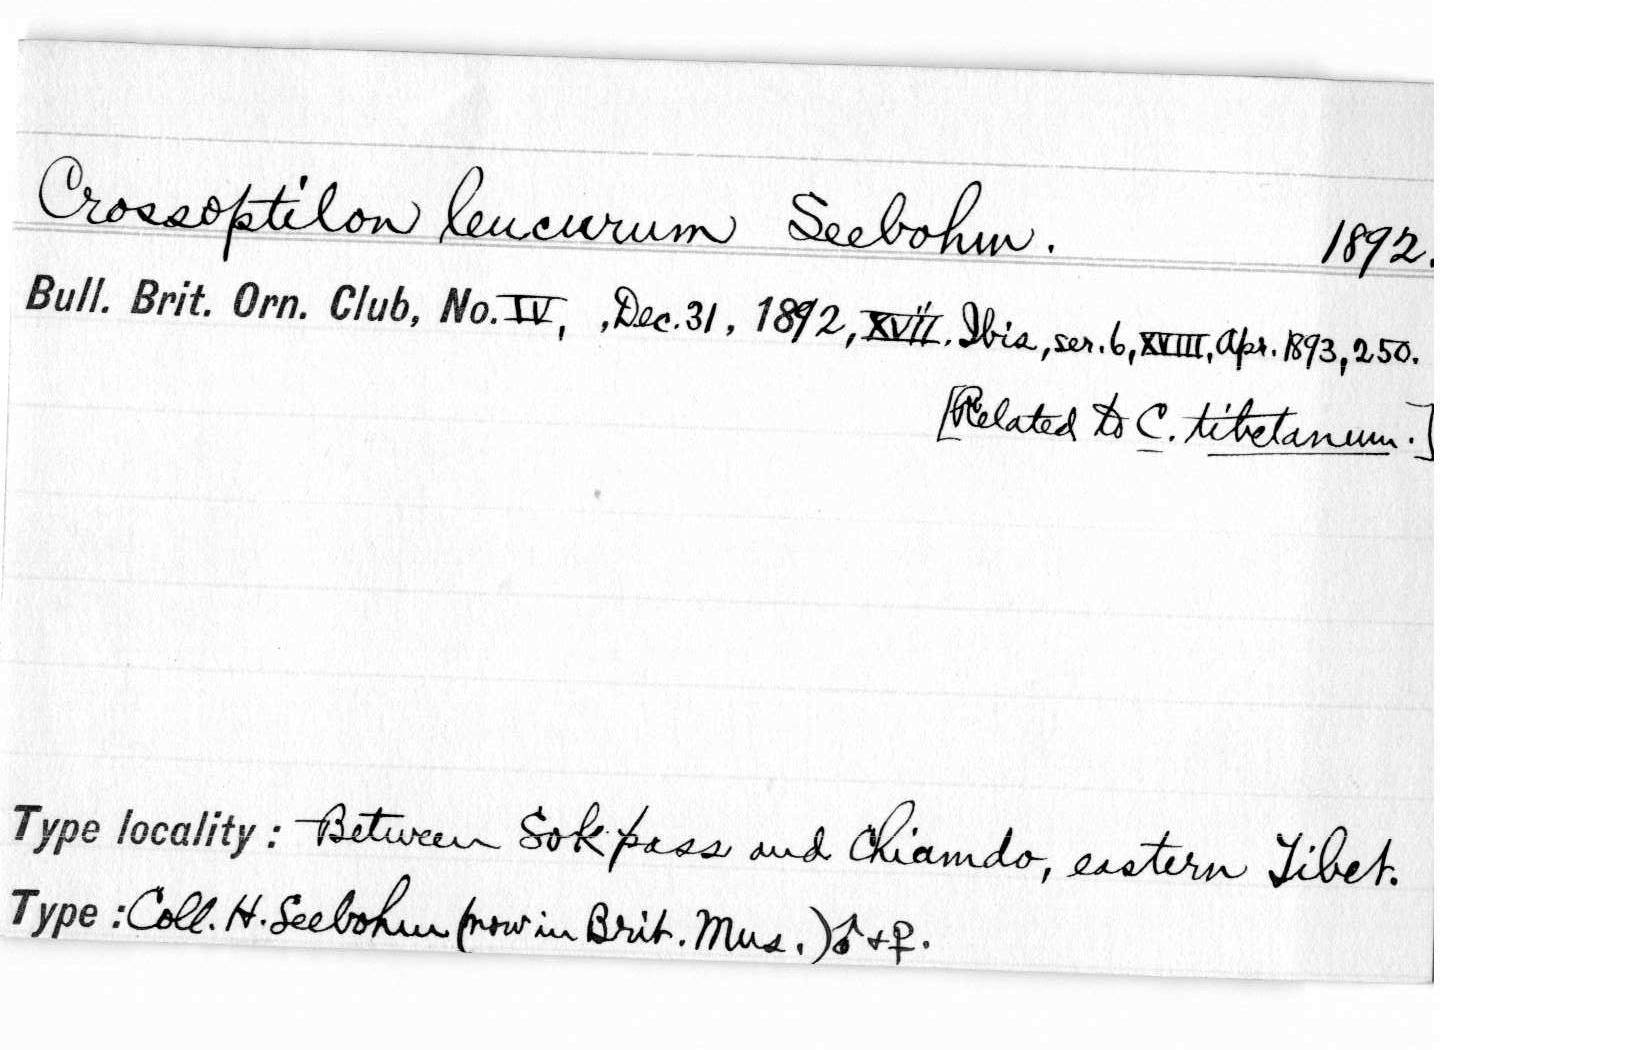 Crossoptilon leucurum Seebohm. 1892.
Bull. Brit. Orn. Club, No. IV, , Dec. 31, 1892, xvii. Ibis, ser. 6, XVIII, Apr. 1893, 250.
[Related to C. tibetanum.]
Type locality: Between Sok pass and Chiamdo, eastern Tibet.
Type: Coll. H. Seebohm (now in Brit. Mus.) ♂ + ♀.